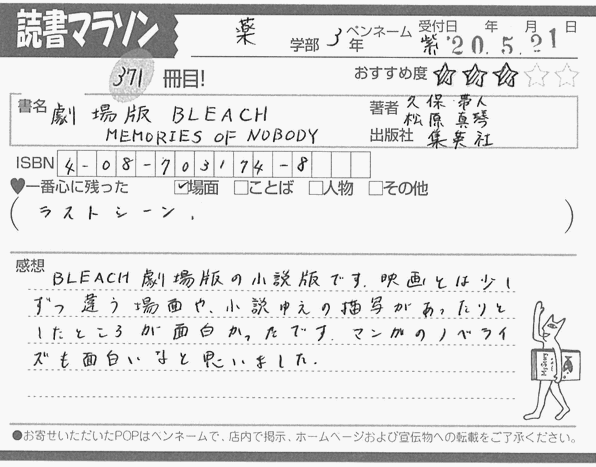 読書マラソン
薬 学部 3年 ペンネーム 紫 受付日 年 月 日 '20.5.21
371 冊目! おすすめ度 ★★★☆☆
書名 劇場版 BLEACH
MEMORIES OF NOBODY
著者 久保 帯人
松原 真琴
出版社 集英社
ISBN 4-08-703174-8
♥一番心に残った ☑場面 □ことば □人物 □その他
(ラストシーン.)
感想
BLEACH劇場版の小説版です.映画とは少し
ずつ違う場面や、小説ゆえの描写があったりと
したところが面白かったです.マンガのノベライ
ズも面白いなと思いました.
English
●お寄せいただいたPOPはペンネームで、店内で掲示、ホームページおよび宣伝物への転載をご了承ください。